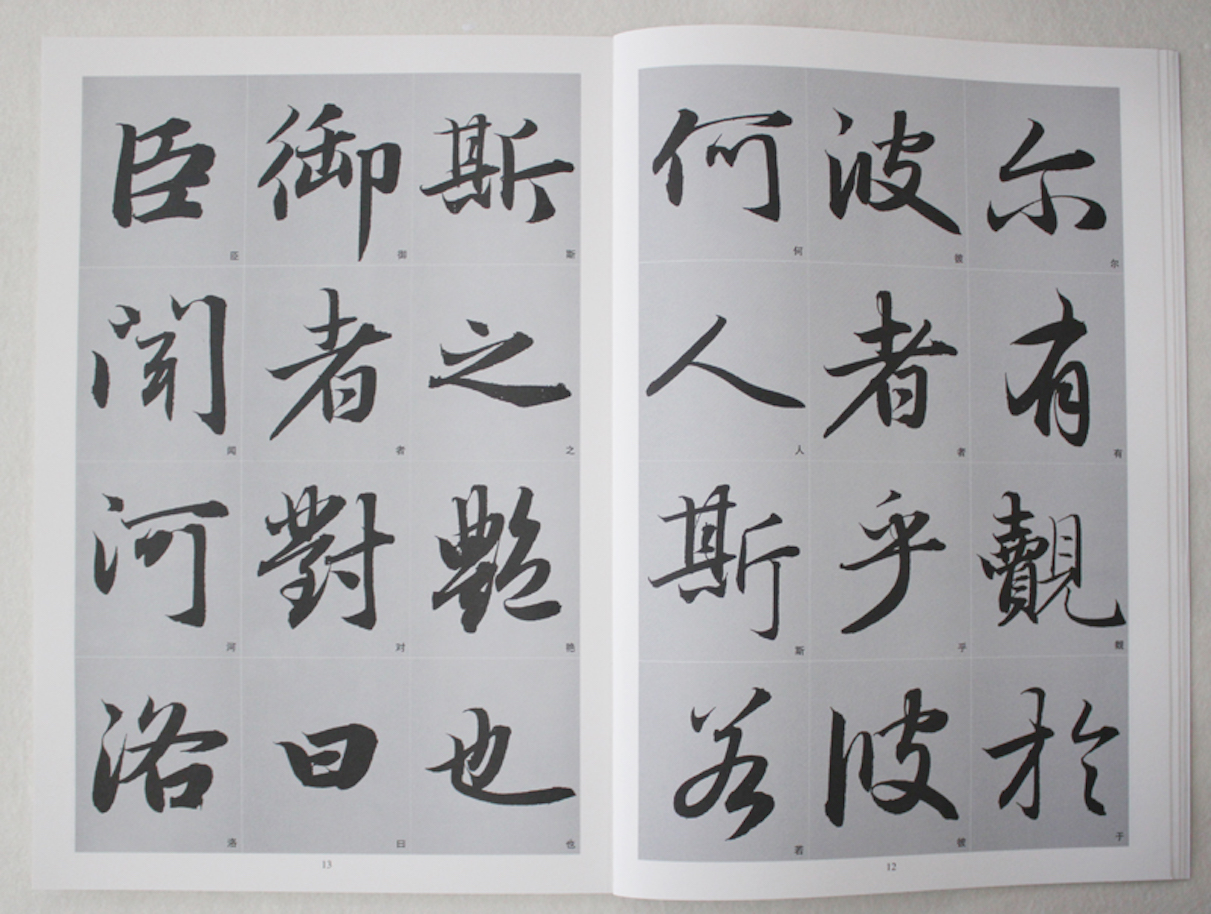 尔有覿於
尔有觌于
彼者乎彼
彼者乎彼
何人斯若
何人斯若
12
斯之艶也
斯之艳也
御者對曰
御者对曰
臣聞河洛
臣闻河洛
13